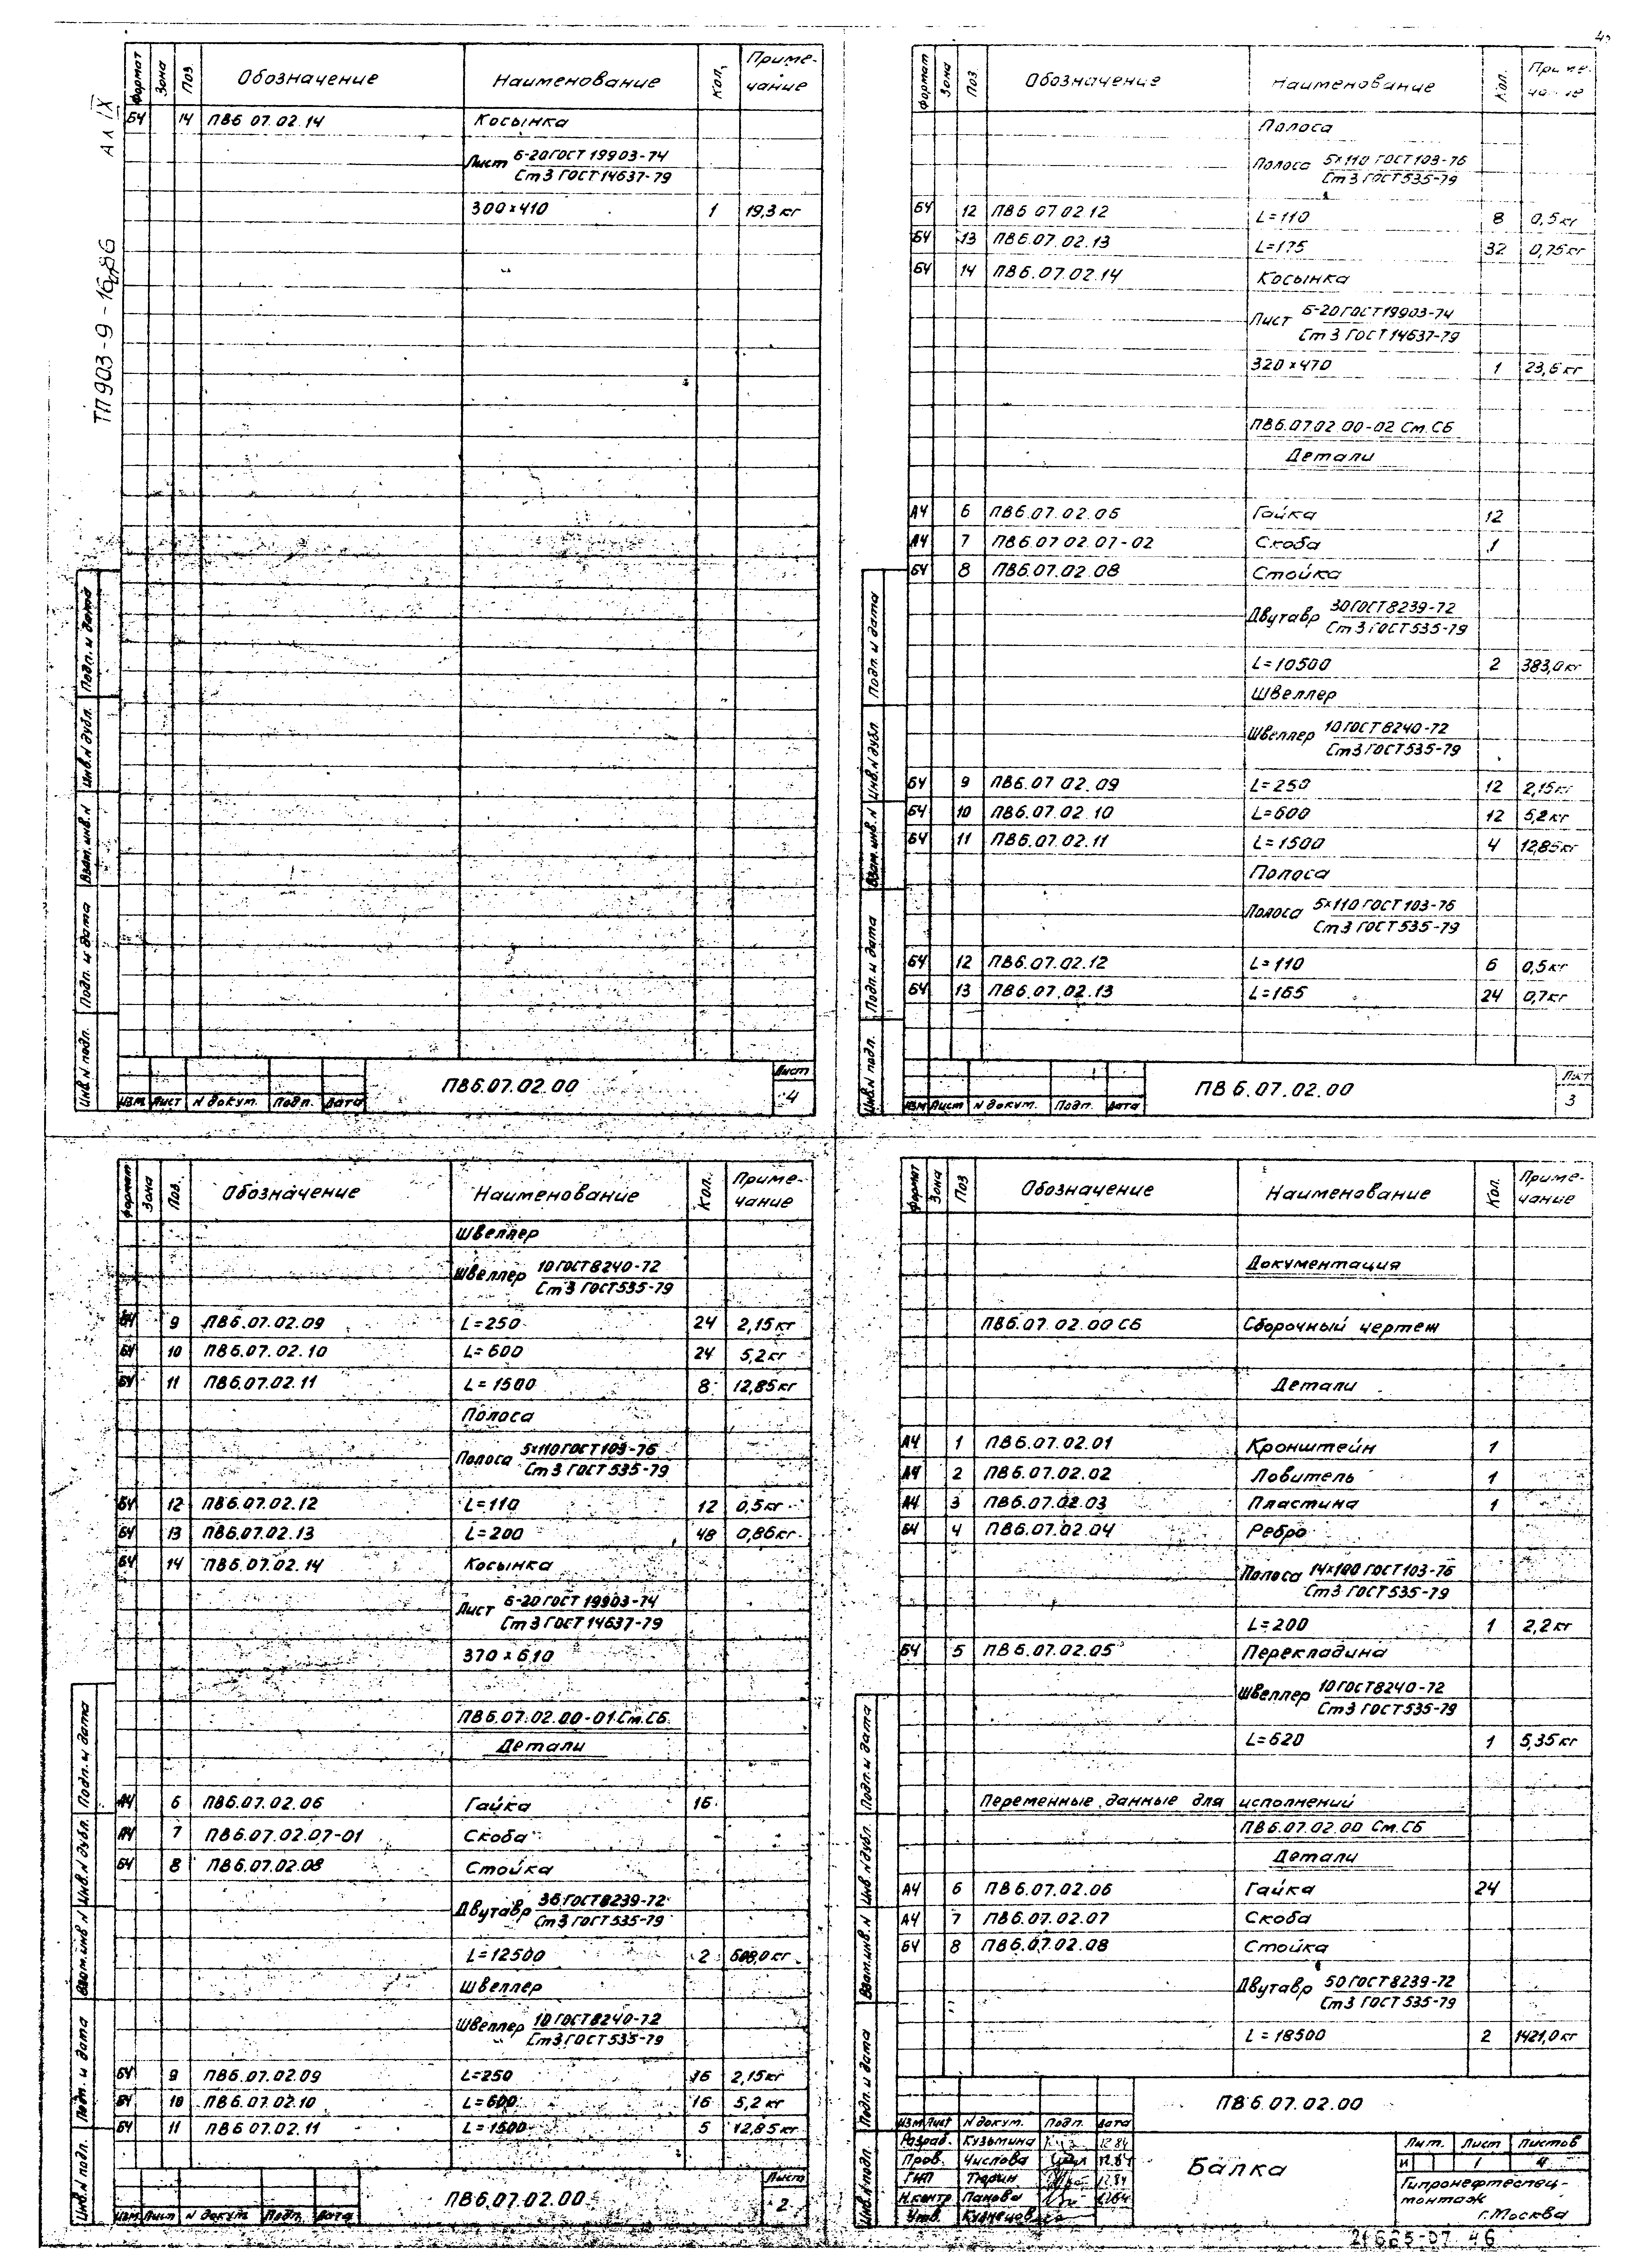 ТП 903-9-16 86
Ал IX
Формат Зона Поз Обозначение Наименование Кол. Приме-
чание
БЧ 14 ПВ6 07.02.14 Косынка
Лист Б-20 ГОСТ 19903-74
Ст 3 ГОСТ 14637-79
300×410 1 19,3 кг
Инв.N подл. Подп. и дата Взам.инв.N Инв.N дубл. Подп. и дата
Изм Лист N докум. Подп. Дата
ПВ6.07.02.00
Лист
4
Формат Зона Поз. Обозначение Наименование Кол. Приме-
чание
Полоса
Полоса 5×110 ГОСТ 103-76
Ст 3 ГОСТ 535-79
БЧ 12 ПВ6 07.02.12 L=110 8 0,5 кг
БЧ 13 ПВ6.07.02.13 L=175 32 0,75 кг
БЧ 14 ПВ6.07.02.14 Косынка
Лист Б-20 ГОСТ 19903-74
Ст 3 ГОСТ 14637-79
320×470 1 23,6 кг
ПВ6.07.02.00-02 См.СБ
Детали
А4 6 ПВ6.07.02.06 Гайка 12
А4 7 ПВ6.07.02.07-02 Скоба 1
БЧ 8 ПВ6.07.02.08 Стойка
Двутавр 30 ГОСТ 8239-72
Ст 3 ГОСТ 535-79
L=10500 2 383,0 кг
Швеллер
Швеллер 10 ГОСТ 8240-72
Ст 3 ГОСТ 535-79
БЧ 9 ПВ6.07 02.09 L=250 12 2,15 кг
БЧ 10 ПВ6.07.02.10 L=600 12 5,2 кг
БЧ 11 ПВ6.07.02.11 L=1500 4 12,85 кг
Полоса
Полоса 5×110 ГОСТ 103-76
Ст 3 ГОСТ 535-79
БЧ 12 ПВ6.07.02.12 L=110 6 0,5 кг
БЧ 13 ПВ6.07.02.13 L=165 24 0,7 кг
Инв.N подл. Подп. и дата Взам.инв.N Инв.N дубл Подп. и дата
Изм Лист N докум. Подп. Дата
ПВ6.07.02.00
Лист
3
Формат Зона Поз. Обозначение Наименование Кол. Приме-
чание
Швеллер
Швеллер 10 ГОСТ 8240-72
Ст 3 ГОСТ 535-79
БЧ 9 ПВ6.07.02.09 L=250 24 2,15 кг
БЧ 10 ПВ6.07.02.10 L=600 24 5,2 кг
БЧ 11 ПВ6.07.02.11 L=1500 8 12,85 кг
Полоса
Полоса 5×110 ГОСТ 103-76
Ст 3 ГОСТ 535-79
БЧ 12 ПВ6.07.02.12 L=110 12 0,5 кг
БЧ 13 ПВ6.07.02.13 L=200 48 0,86 кг
БЧ 14 ПВ6.07.02.14 Косынка
Лист Б-20 ГОСТ 19903-74
Ст 3 ГОСТ 14637-79
370×610
ПВ6.07.02.00-01 См.СБ.
Детали
А4 6 ПВ6.07.02.06 Гайка 16
А4 7 ПВ6.07.02.07-01 Скоба
БЧ 8 ПВ6.07.02.08 Стойка
Двутавр 36 ГОСТ 8239-72
Ст 3 ГОСТ 535-79
L=12500 2
Швеллер
Швеллер 10 ГОСТ 8240-72
Ст 3 ГОСТ 535-79
БЧ 9 ПВ6.07.02.09 L=250 16 2,15 кг
БЧ 10 ПВ6.07.02.10 L=600 16 5,2 кг
БЧ 11 ПВ6 07.02.11 L=1500 5 12,85 кг
Инв.N подл. Подп. и дата Взам.инв N Инв.N дубл. Подп. и дата
Изм Лист N докум Подп. Дата
ПВ6.07.02.00
Лист
2
Формат Зона Поз Обозначение Наименование Кол. Приме-
чание
Документация
ПВ6.07.02.00 СБ Сборочный чертеж
Детали
А4 1 ПВ6.07.02.01 Кронштейн 1
А4 2 ПВ6.07.02.02 Ловитель 1
А4 3 ПВ6.07.02.03 Пластина 1
БЧ 4 ПВ6.07.02.04 Ребро
Полоса 14×100 ГОСТ 103-76
Ст 3 ГОСТ 535-79
L=200 1 2,2 кг
БЧ 5 ПВ6.07.02.05 Перекладина
Швеллер 10 ГОСТ 8240-72
Ст 3 ГОСТ 535-79
L=620 1 5,35 кг
Переменные данные для исполнений
ПВ6.07.02.00 См.СБ
Детали
А4 6 ПВ6.07.02.06 Гайка 24
А4 7 ПВ6.07.02.07 Скоба
БЧ 8 ПВ6.07.02.08 Стойка
Двутавр 50 ГОСТ 8239-72
Ст 3 ГОСТ 535-79
L=18500 2 1421,0 кг
Инв.N подл Подп. и дата Взам.инв.N Инв.N дубл. Подп. и дата
ПВ6.07.02.00
Изм Лист N докум. Подп. Дата
Разраб. Кузьмина 12.84
Пров. Числова 12.84
ГИП Тюрин 12.84
Н.контр Панова 12.84
Утв. Кузнецов
Балка
Лит. Лист Листов
И 1 4
Гипронефтеспец-
монтаж
г.Москва
21625-07 46